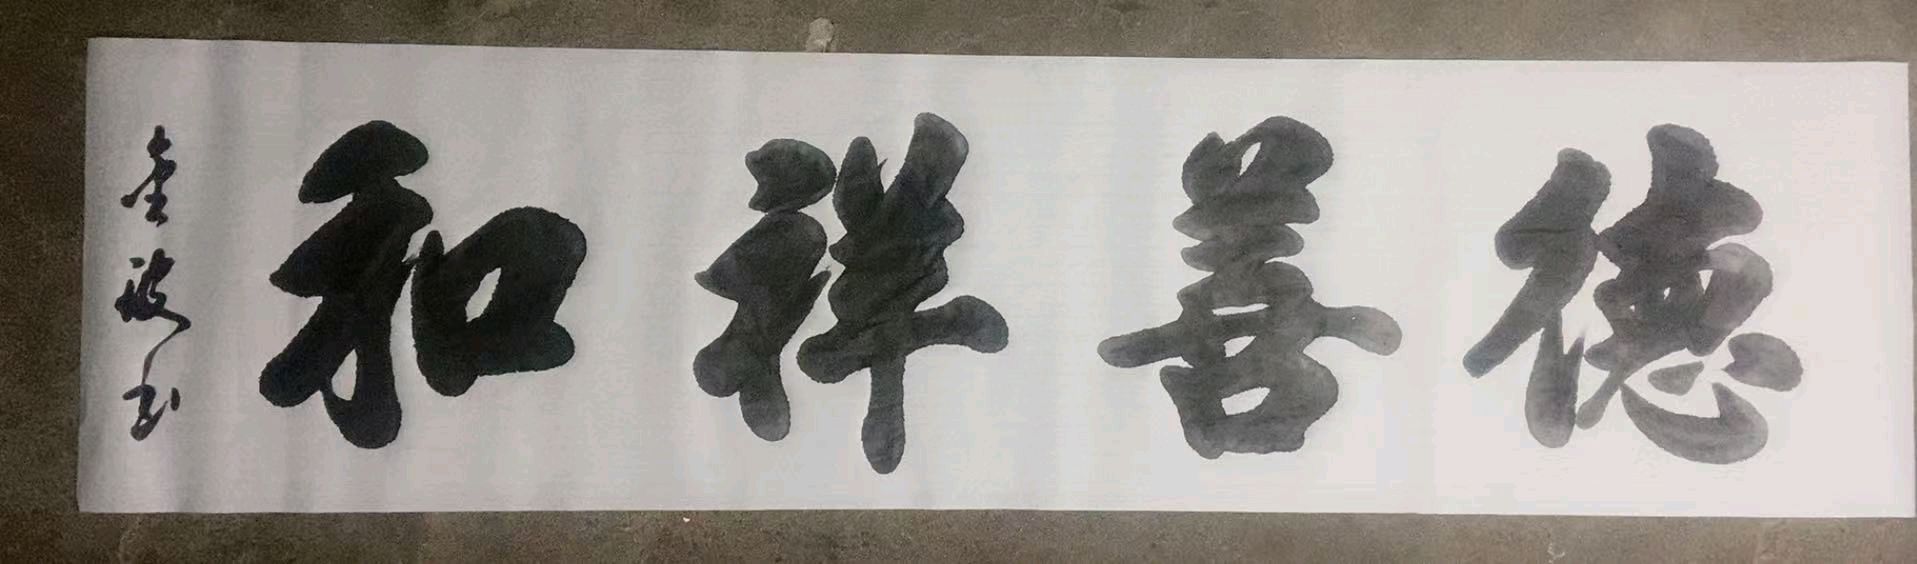 德善祥和
金波书